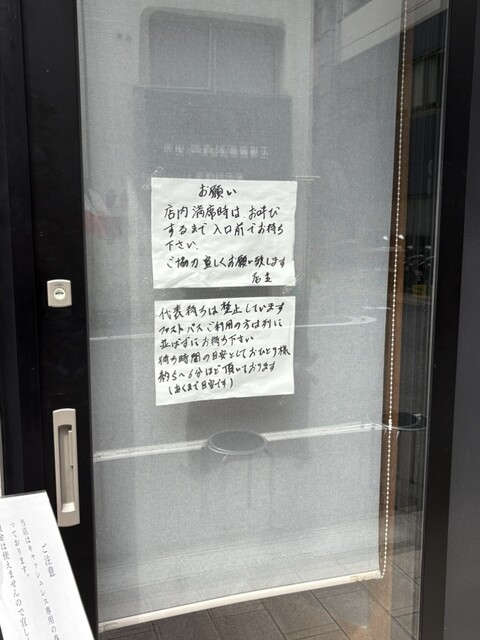 お願い
店内満席時は、お呼び
するまで入口前でお待ち
下さい.
ご協力宜しくお願い致します
店主
代表待ちは禁止しています
ファストパスご利用の方は列に
並ばずにお待ち下さい
待ち時間の目安としておひとり様
約5〜6分ほど頂いております
(あくまで目安です)
ご注意
当店はキャッシュレス専用の
っております。
現金は使えませんので宜し